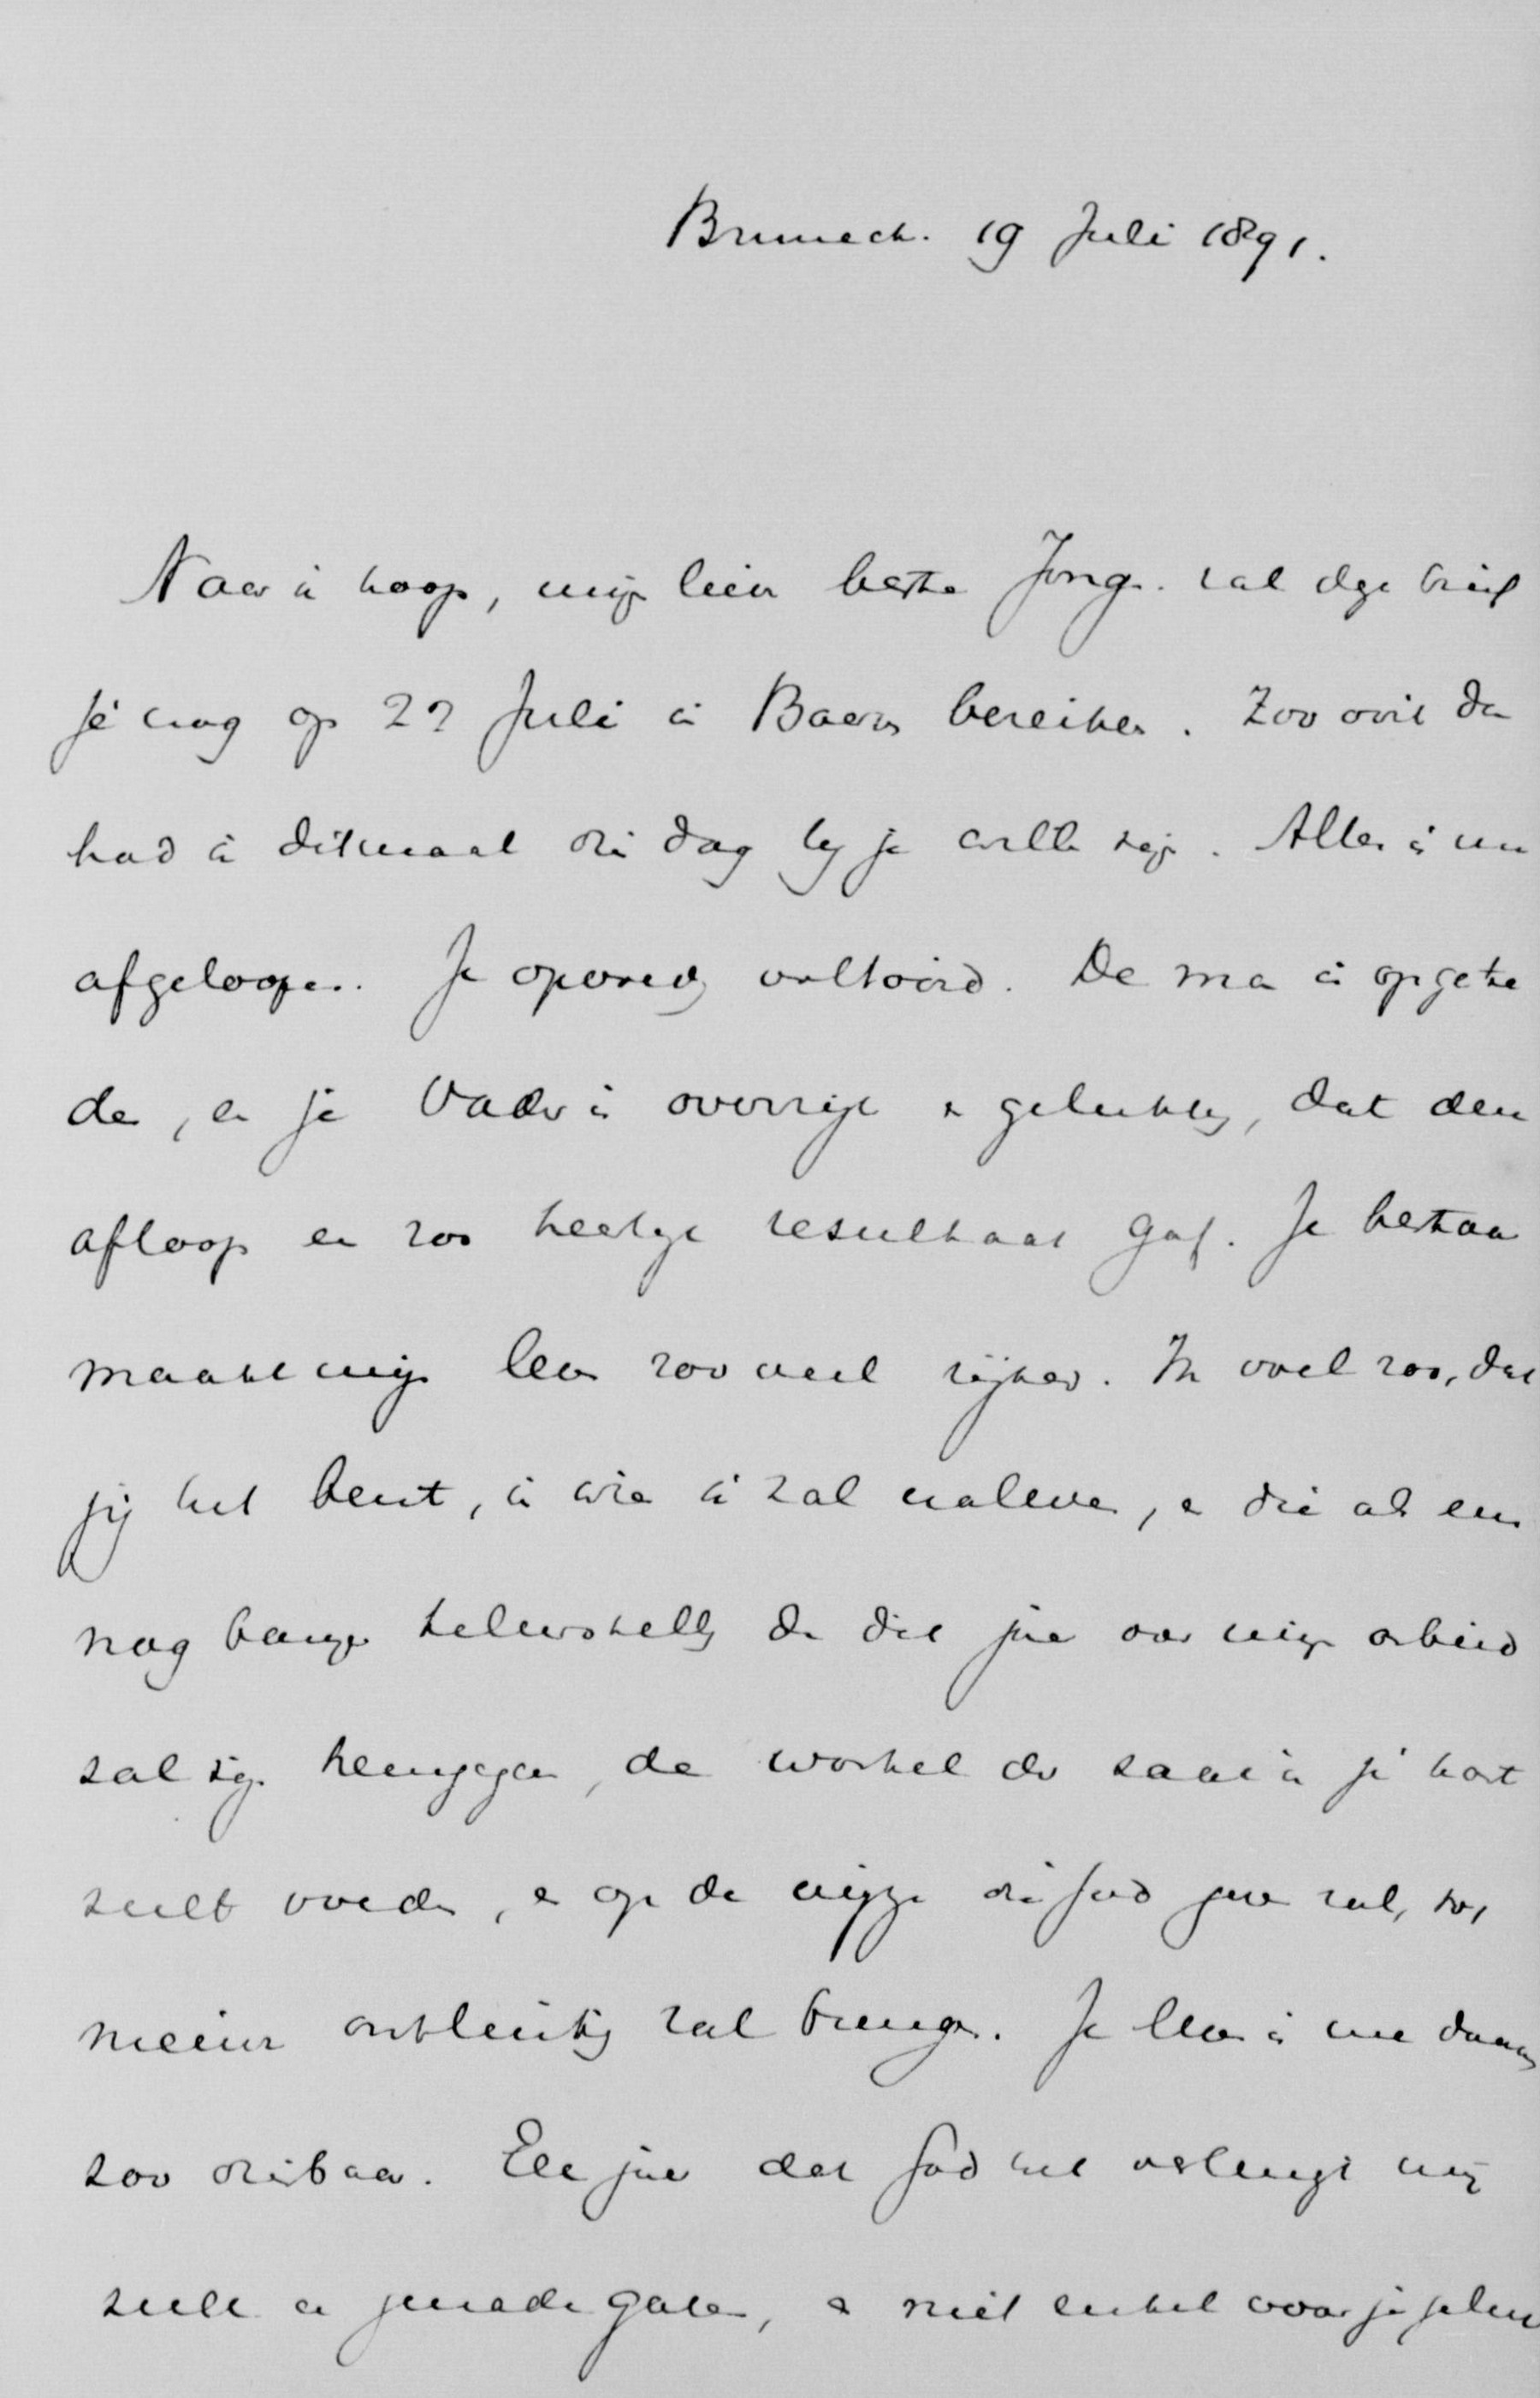 Bruneck. 19 Juli 1891.
Naar ik hoop, mijn lieve beste Jongen. zal deze brief
je nog op 22 Juli in Baarn bereiken. Zoo ooit dan
had ik ditmaal die dag bij je willen zijn. Alles is nu
afgeloopen. Je opvoeding voltooid. De man is opgetre
den, en je Vader is overrijk en gelukkig, dat den
afloop een zoo heerlijk resultaat gaf. Je bestaan
maakt mijn leven zooveel rijker. Ik voel zoo, dat
jij het bent, in wie ik zal naleven, en die als een
nog bange teleurstelling de dit jaar over mijn arbeid
zal zijn heengegaan, de wortel der zaak in je hart
zult voeden, en op de wijze die God geven zal, tot
nieuwe ontluiking zal brengen. Je leven is me daarom
zoo dierbaar. Elk jaar dat God het verlengt mij
zulk een genadegave, en niet enkel voor je